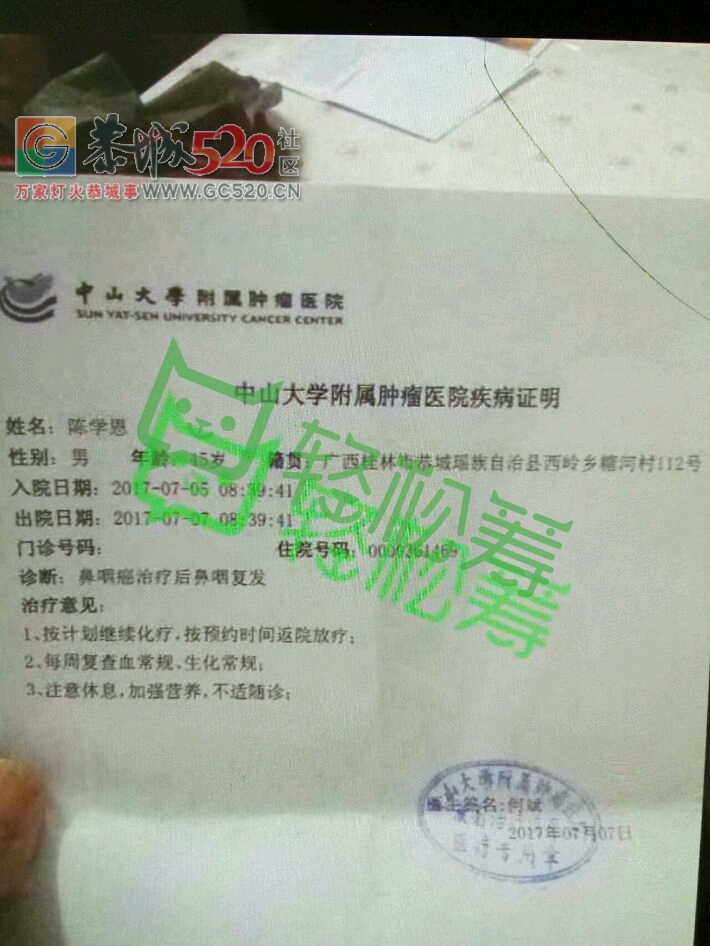 恭城520社区
万家灯火恭城事 WWW.GC520.CN
中山大学附属肿瘤医院
SUN YAT-SEN UNIVERSITY CANCER CENTER
中山大学附属肿瘤医院疾病证明
姓名：陈学恩
性别：男 年龄：45岁 籍贯：广西桂林市恭城瑶族自治县西岭乡糖河村112号
入院日期：2017-07-05 08:39:41
出院日期：2017-07-07 08:39:41
门诊号码： 住院号码：0000261469
诊断：鼻咽癌治疗后鼻咽复发
治疗意见：
1、按计划继续化疗，按预约时间返院放疗；
2、每周复查血常规、生化常规；
3、注意休息，加强营养，不适随诊；
轻松筹
轻松筹
中山大学附属肿瘤医院
医生签名：何斌
2017年07月07日
医疗专用章